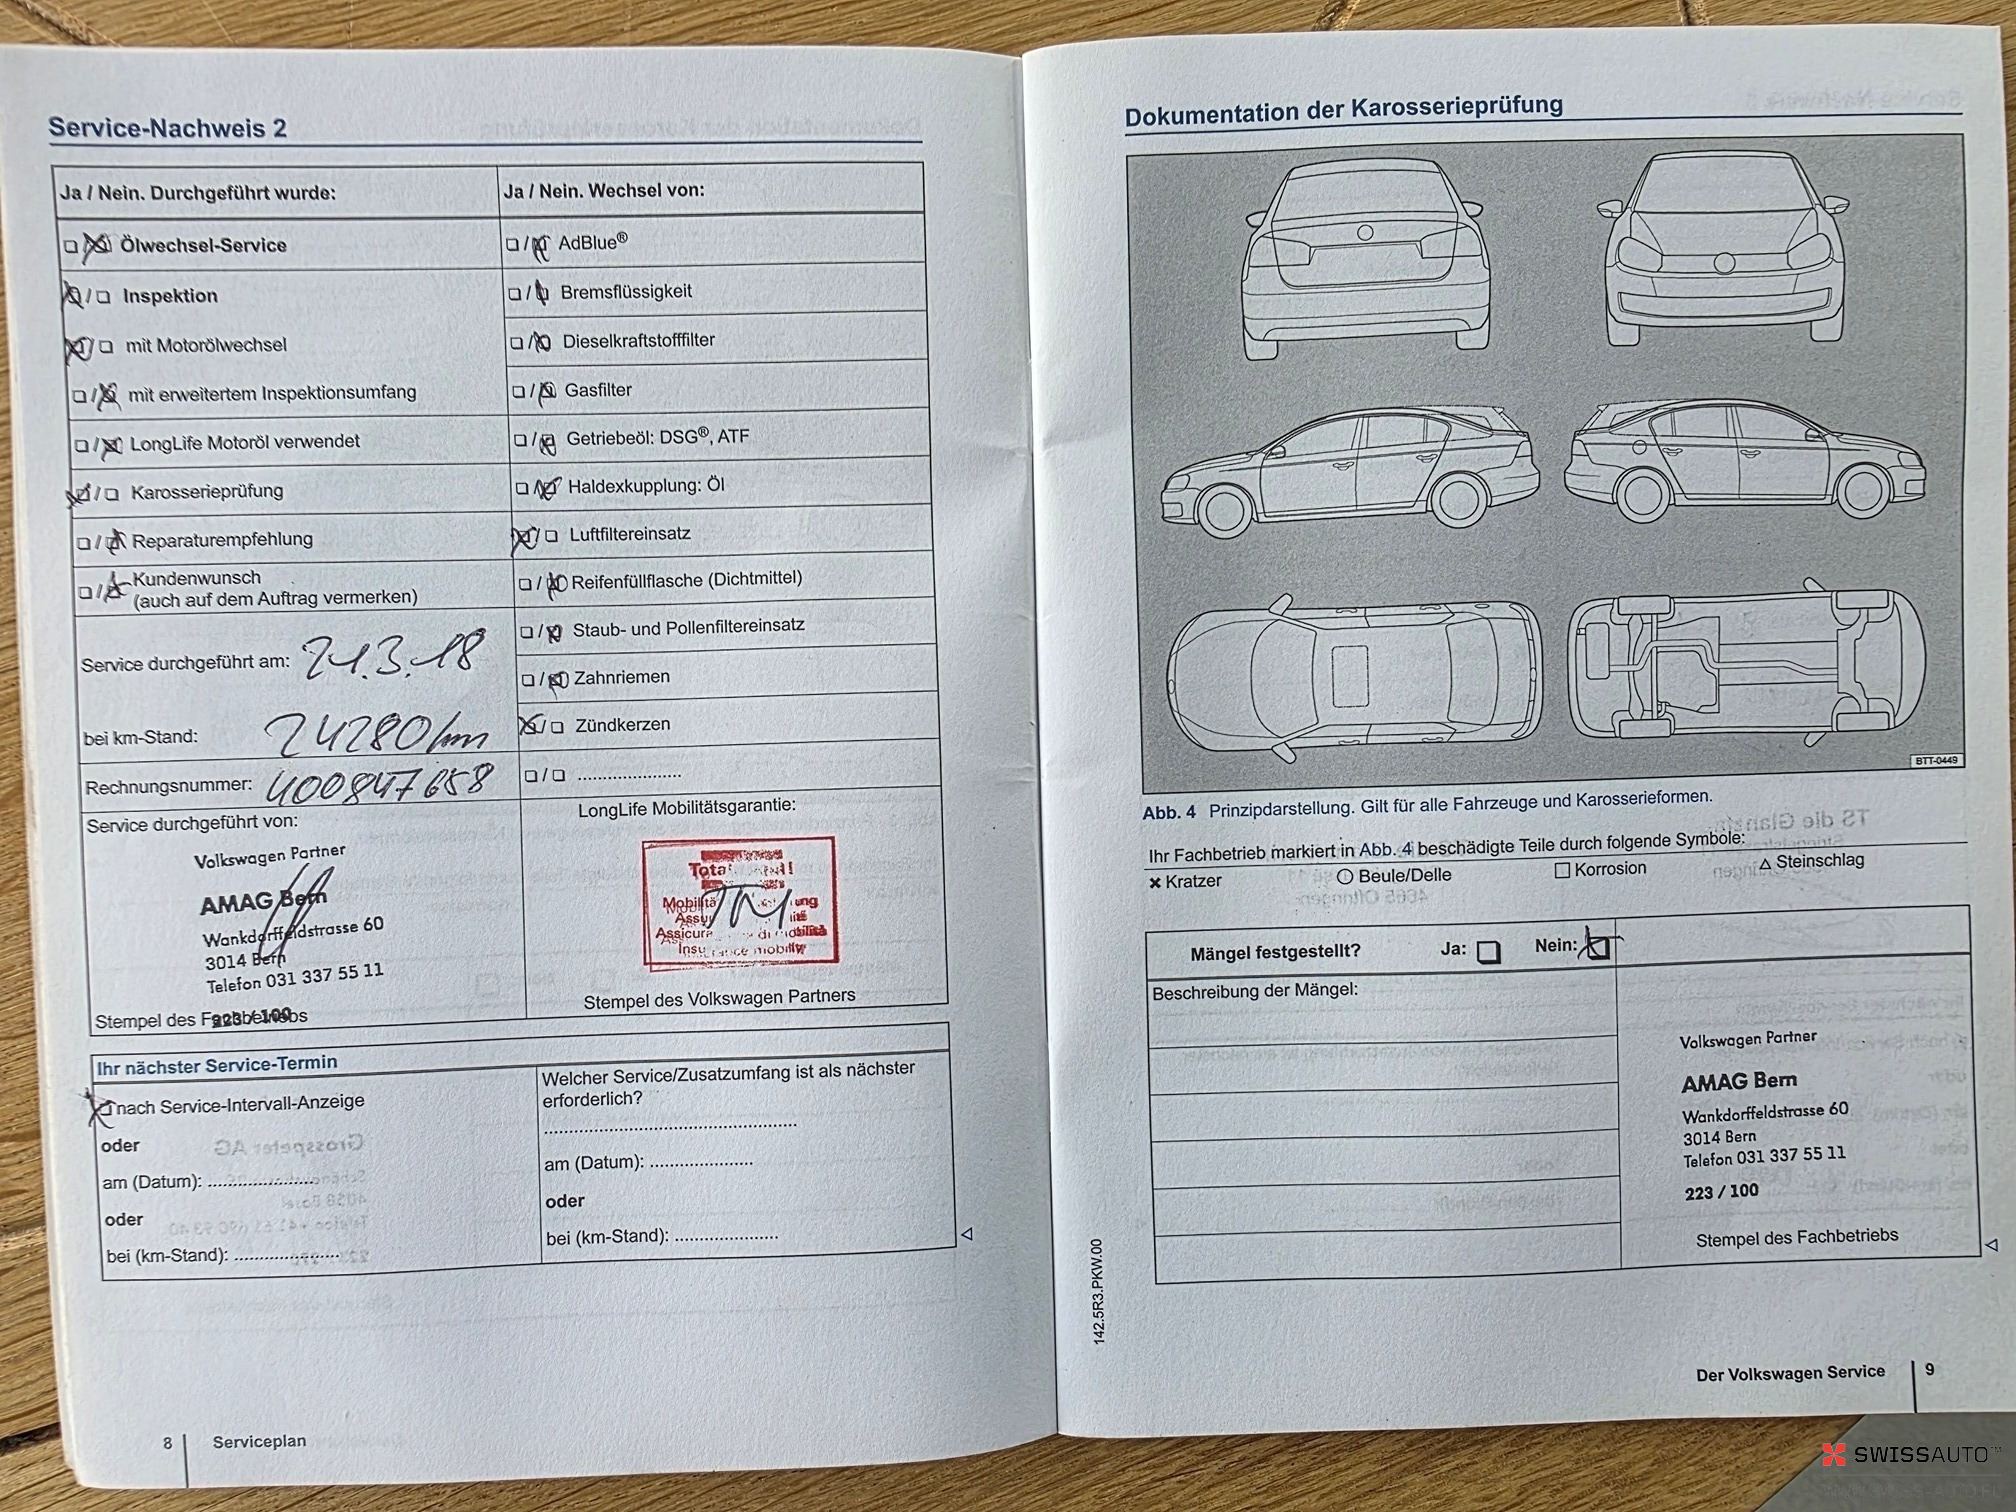 Service-Nachweis 2
Ja / Nein. Durchgeführt wurde:
Ölwechsel-Service
Inspektion
mit Motorölwechsel
mit erweitertem Inspektionsumfang
LongLife Motoröl verwendet
Karosserieprüfung
Reparaturempfehlung
Kundenwunsch
(auch auf dem Auftrag vermerken)
Service durchgeführt am: 21.3.18
bei km-Stand: 24280 km
Rechnungsnummer: 400847658
Service durchgeführt von:
Volkswagen Partner
AMAG Bern
Wankdorffeldstrasse 60
3014 Bern
Telefon 031 337 55 11
223 / 100
Stempel des Fachbetriebs
Ja / Nein. Wechsel von:
AdBlue®
Bremsflüssigkeit
Dieselkraftstofffilter
Gasfilter
Getriebeöl: DSG®, ATF
Haldexkupplung: Öl
Luftfiltereinsatz
Reifenfüllflasche (Dichtmittel)
Staub- und Pollenfiltereinsatz
Zahnriemen
Zündkerzen
LongLife Mobilitätsgarantie:
Stempel des Volkswagen Partners
Ihr nächster Service-Termin
nach Service-Intervall-Anzeige
oder
am (Datum):
oder
bei (km-Stand):
Welcher Service/Zusatzumfang ist als nächster
erforderlich?
am (Datum):
oder
bei (km-Stand):
8 Serviceplan
Dokumentation der Karosserieprüfung
BTT-0449
Abb. 4 Prinzipdarstellung. Gilt für alle Fahrzeuge und Karosserieformen.
Ihr Fachbetrieb markiert in Abb. 4 beschädigte Teile durch folgende Symbole:
Kratzer Beule/Delle Korrosion Steinschlag
Mängel festgestellt? Ja: Nein:
Beschreibung der Mängel:
Volkswagen Partner
AMAG Bern
Wankdorffeldstrasse 60
3014 Bern
Telefon 031 337 55 11
223 / 100
Stempel des Fachbetriebs
142.5R3.PKW.00
Der Volkswagen Service 9
SWISSAUTO™